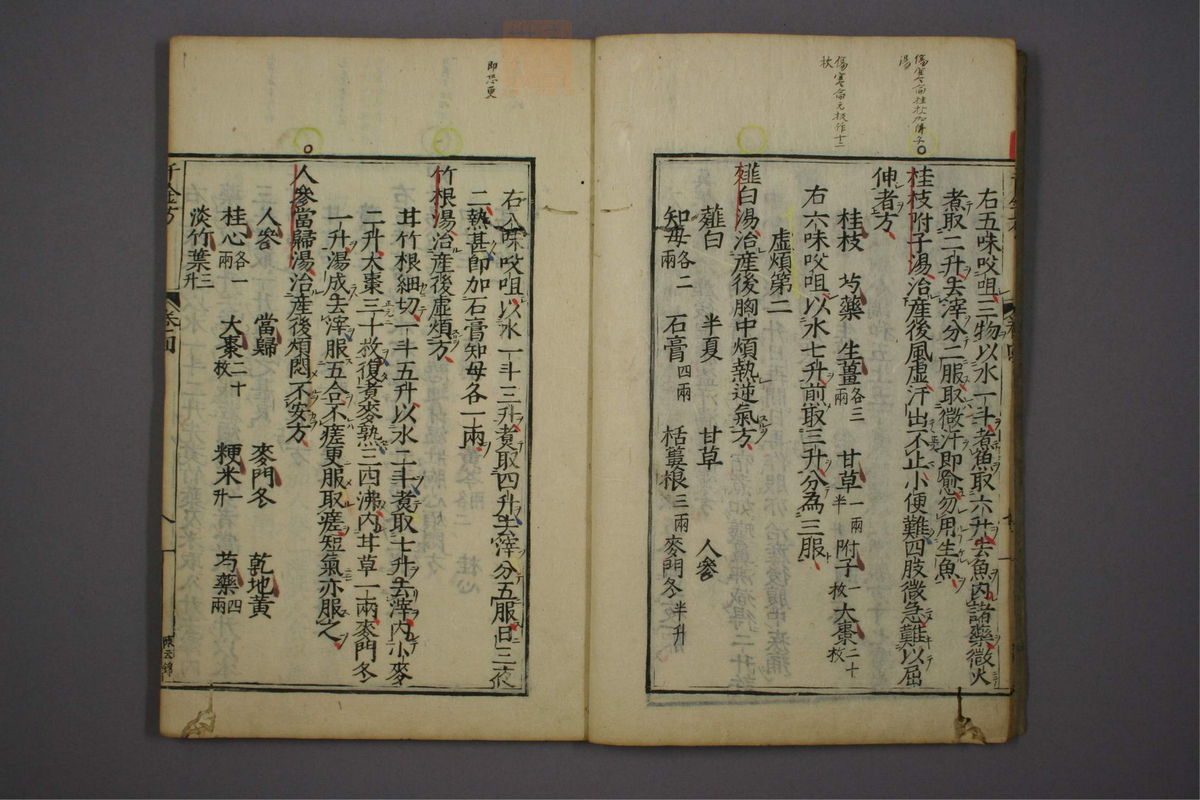 右五味㕮咀三物以水一斗煮魚取六升去魚内諸藥微火
煮取二升去滓分二服取微汗即愈勿用生魚
桂枝附子湯治産後風虛汗出不止小便難四肢微急難以屈
伸者方
桂枝 芍藥 生薑各三兩 甘草一兩半 附子一枚 大棗二十枚
右六味㕮咀以水七升煎取三升分為三服
虛煩第二
薤白湯治産後胸中煩熱逆氣方
薤白 半夏 甘草 人參
知母各二兩 石膏四兩 栝蔞根三兩 麥門冬半升
傷寒論桂枝加附子
湯
傷寒論
枚
右八味㕮咀以水一斗三升煮取四升去滓分五服日三夜
二熱甚即加石膏知母各一兩
竹根湯治産後虛煩方
甘竹根細切一斗五升以水二斗煮取七升去滓内小麥
二升大棗三十枚復煮麥熟三四沸内甘草一兩麥門冬
一升湯成去滓服五合不瘥更服取瘥短氣亦服之
人參當歸湯治産後煩悶不安方
人參 當歸 麥門冬 乾地黃
桂心各一兩 大棗二十枚 粳米一升 芍藥四兩
淡竹葉三升
千金方 卷 四